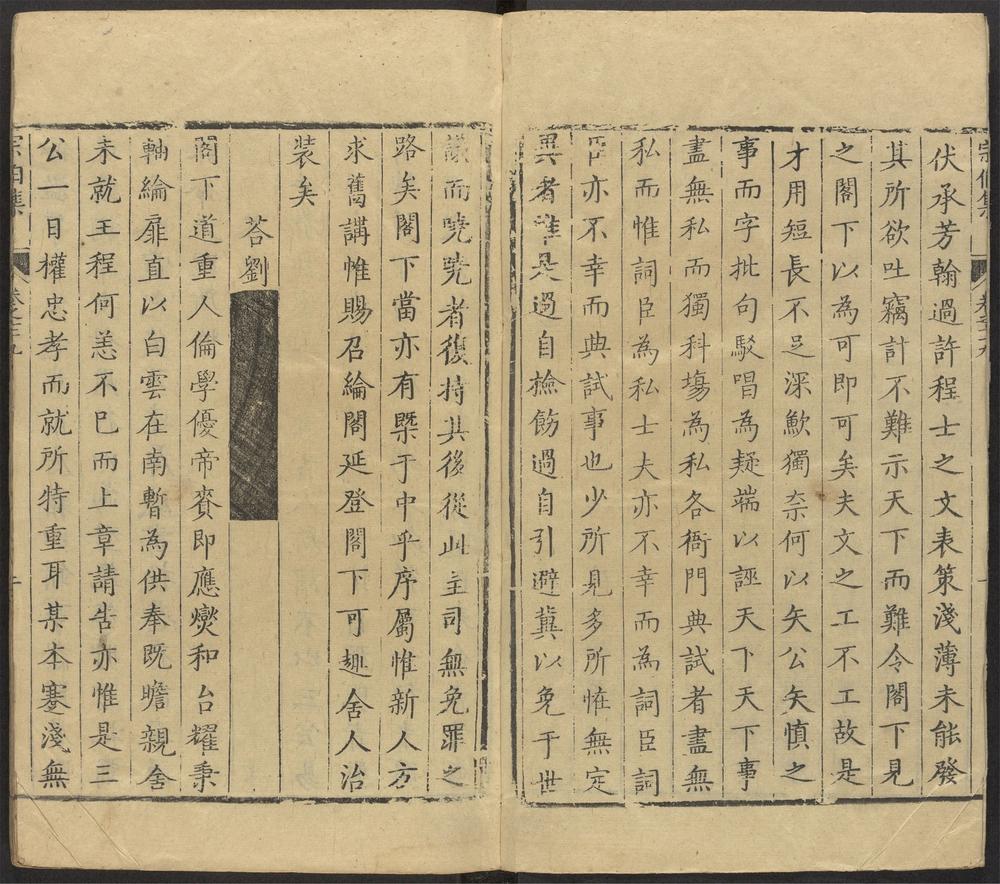 宗伯集
伏承芳翰過許程士之文表策淺薄未能發
其所欲吐竊計不難示天下而難令閣下見
之閣下以為可即可矣夫文之工不工故是
才用短長不足深歉獨奈何以矢公矢慎之
事而字批句駁唱為疑端以誣天下天下事
盡無私而獨科塲為私各衙門典試者盡無
私而惟詞臣為私士夫亦不幸而為詞臣詞
臣亦不幸而典試事也少所見多所恠無定
異者誰是過自檢飭過自引避冀以免于世
而曉曉者復持其後從此主司無免罪之
路矣閣下當亦有槩于中乎序屬惟新人方
求舊講惟賜召綸閣延登閣下可趣舍人治
裝矣
荅劉
閣下道重人倫學優帝賚即應爕和台耀秉
軸綸扉直以白雲在南暫為供奉既瞻親舍
未就王程何恙不已而上章請告亦惟是三
公一日權忠孝而就所特重耳某本蹇淺無
宗伯集